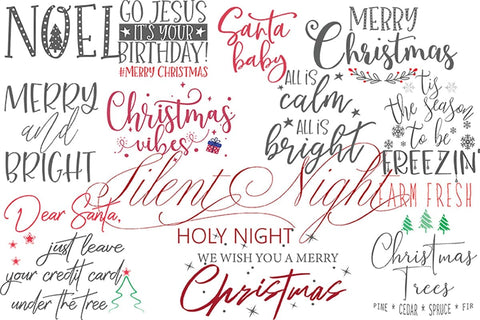 NOEL
GO JESUS
IT'S YOUR
BIRTHDAY!
#MERRY CHRISTMAS
Santa
baby
MERRY
Christmas
MERRY
and
BRIGHT
Christmas
vibes
ALL IS
calm
ALL IS
bright
'tis
the season
to be
FREEZIN'
Silent Night
HOLY NIGHT
WE WISH YOU A MERRY
Christmas
Dear Santa,
just leave
your credit card
under the tree
FARM FRESH
Christmas
Trees
PINE * CEDAR * SPRUCE * FIR